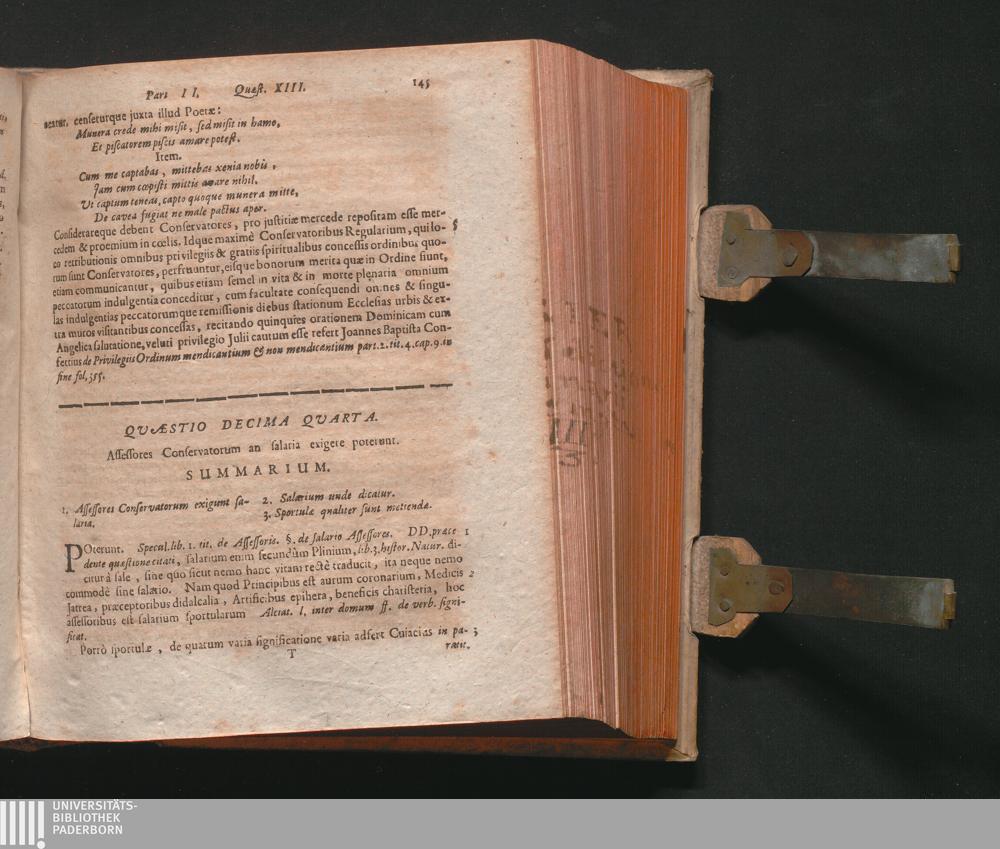 Part II. Quæst. XIII. 145
neatur, censeturque juxta illud Poetæ:
Munera crede mihi misit, sed misit in hamo,
Et piscatorem piscis amare potest.
Item.
Cum me captabas, mittebas xenia nobis,
Jam cum cœpisti mittis avare nihil.
Ut captum teneas, capto quoque munera mitte,
De cavea fugiat ne male pactus aper.
Considerareque debent Conservatores, pro justitiæ mercede repositam esse mer- §
cedem & proemium in cœlis. Idque maximè Conservatoribus Regularium, qui lo-
co retributionis omnibus privilegiis & gratiis spiritualibus concessis ordinibus quo-
rum sunt Conservatores, perfruuntur, eisque bonorum merita quæ in Ordine fiunt,
etiam communicantur, quibus etiam semel in vita & in morte plenaria omnium
peccatorum indulgentia conceditur, cum facultate consequendi omnes & singu-
las indulgentias peccatorumque remissionis diebus stationum Ecclesias urbis & ex-
tra muros visitantibus concessas, recitando quinquies orationem Dominicam cum
Angelica salutatione, veluti privilegio Julii cautum esse refert Joannes Baptista Con-
fettius de Privilegiis Ordinum mendicantium & non mendicantium part. 2. tit. 4. cap. 9. in
fine fol. 355.
QUÆSTIO DECIMA QUARTA.
Assessores Conservatorum an salaria exigere poterunt.
SUMMARIUM.
1. Assessores Conservatorum exigunt sa-
laria.
2. Salarium unde dicatur.
3. Sportulæ qualiter sunt mettendæ.
POterunt. Specul. lib. 1. tit. de Assessoris. §. de salario Assessores. DD. præce 1
dente quæstione citati, salarium enim secundùm Plinium, lib. 3. histor. Natur. di-
citur à sale, sine quo sicut nemo hanc vitam rectè traducit, ita neque nemo
commodè sine salario. Nam quod Principibus est aurum coronarium, Medicis 2
Jatrea, præceptoribus didalcalia, Artificibus epihera, beneficis charisteria, hoc
assessoribus est salarium sportularum Alciat. l. inter domum ff. de verb. signi-
ficat.
Porrò sportulæ, de quarum varia significatione varia adfert Cuiacius in pa- 3
T ratit.
UNIVERSITÄTS-
BIBLIOTHEK
PADERBORN